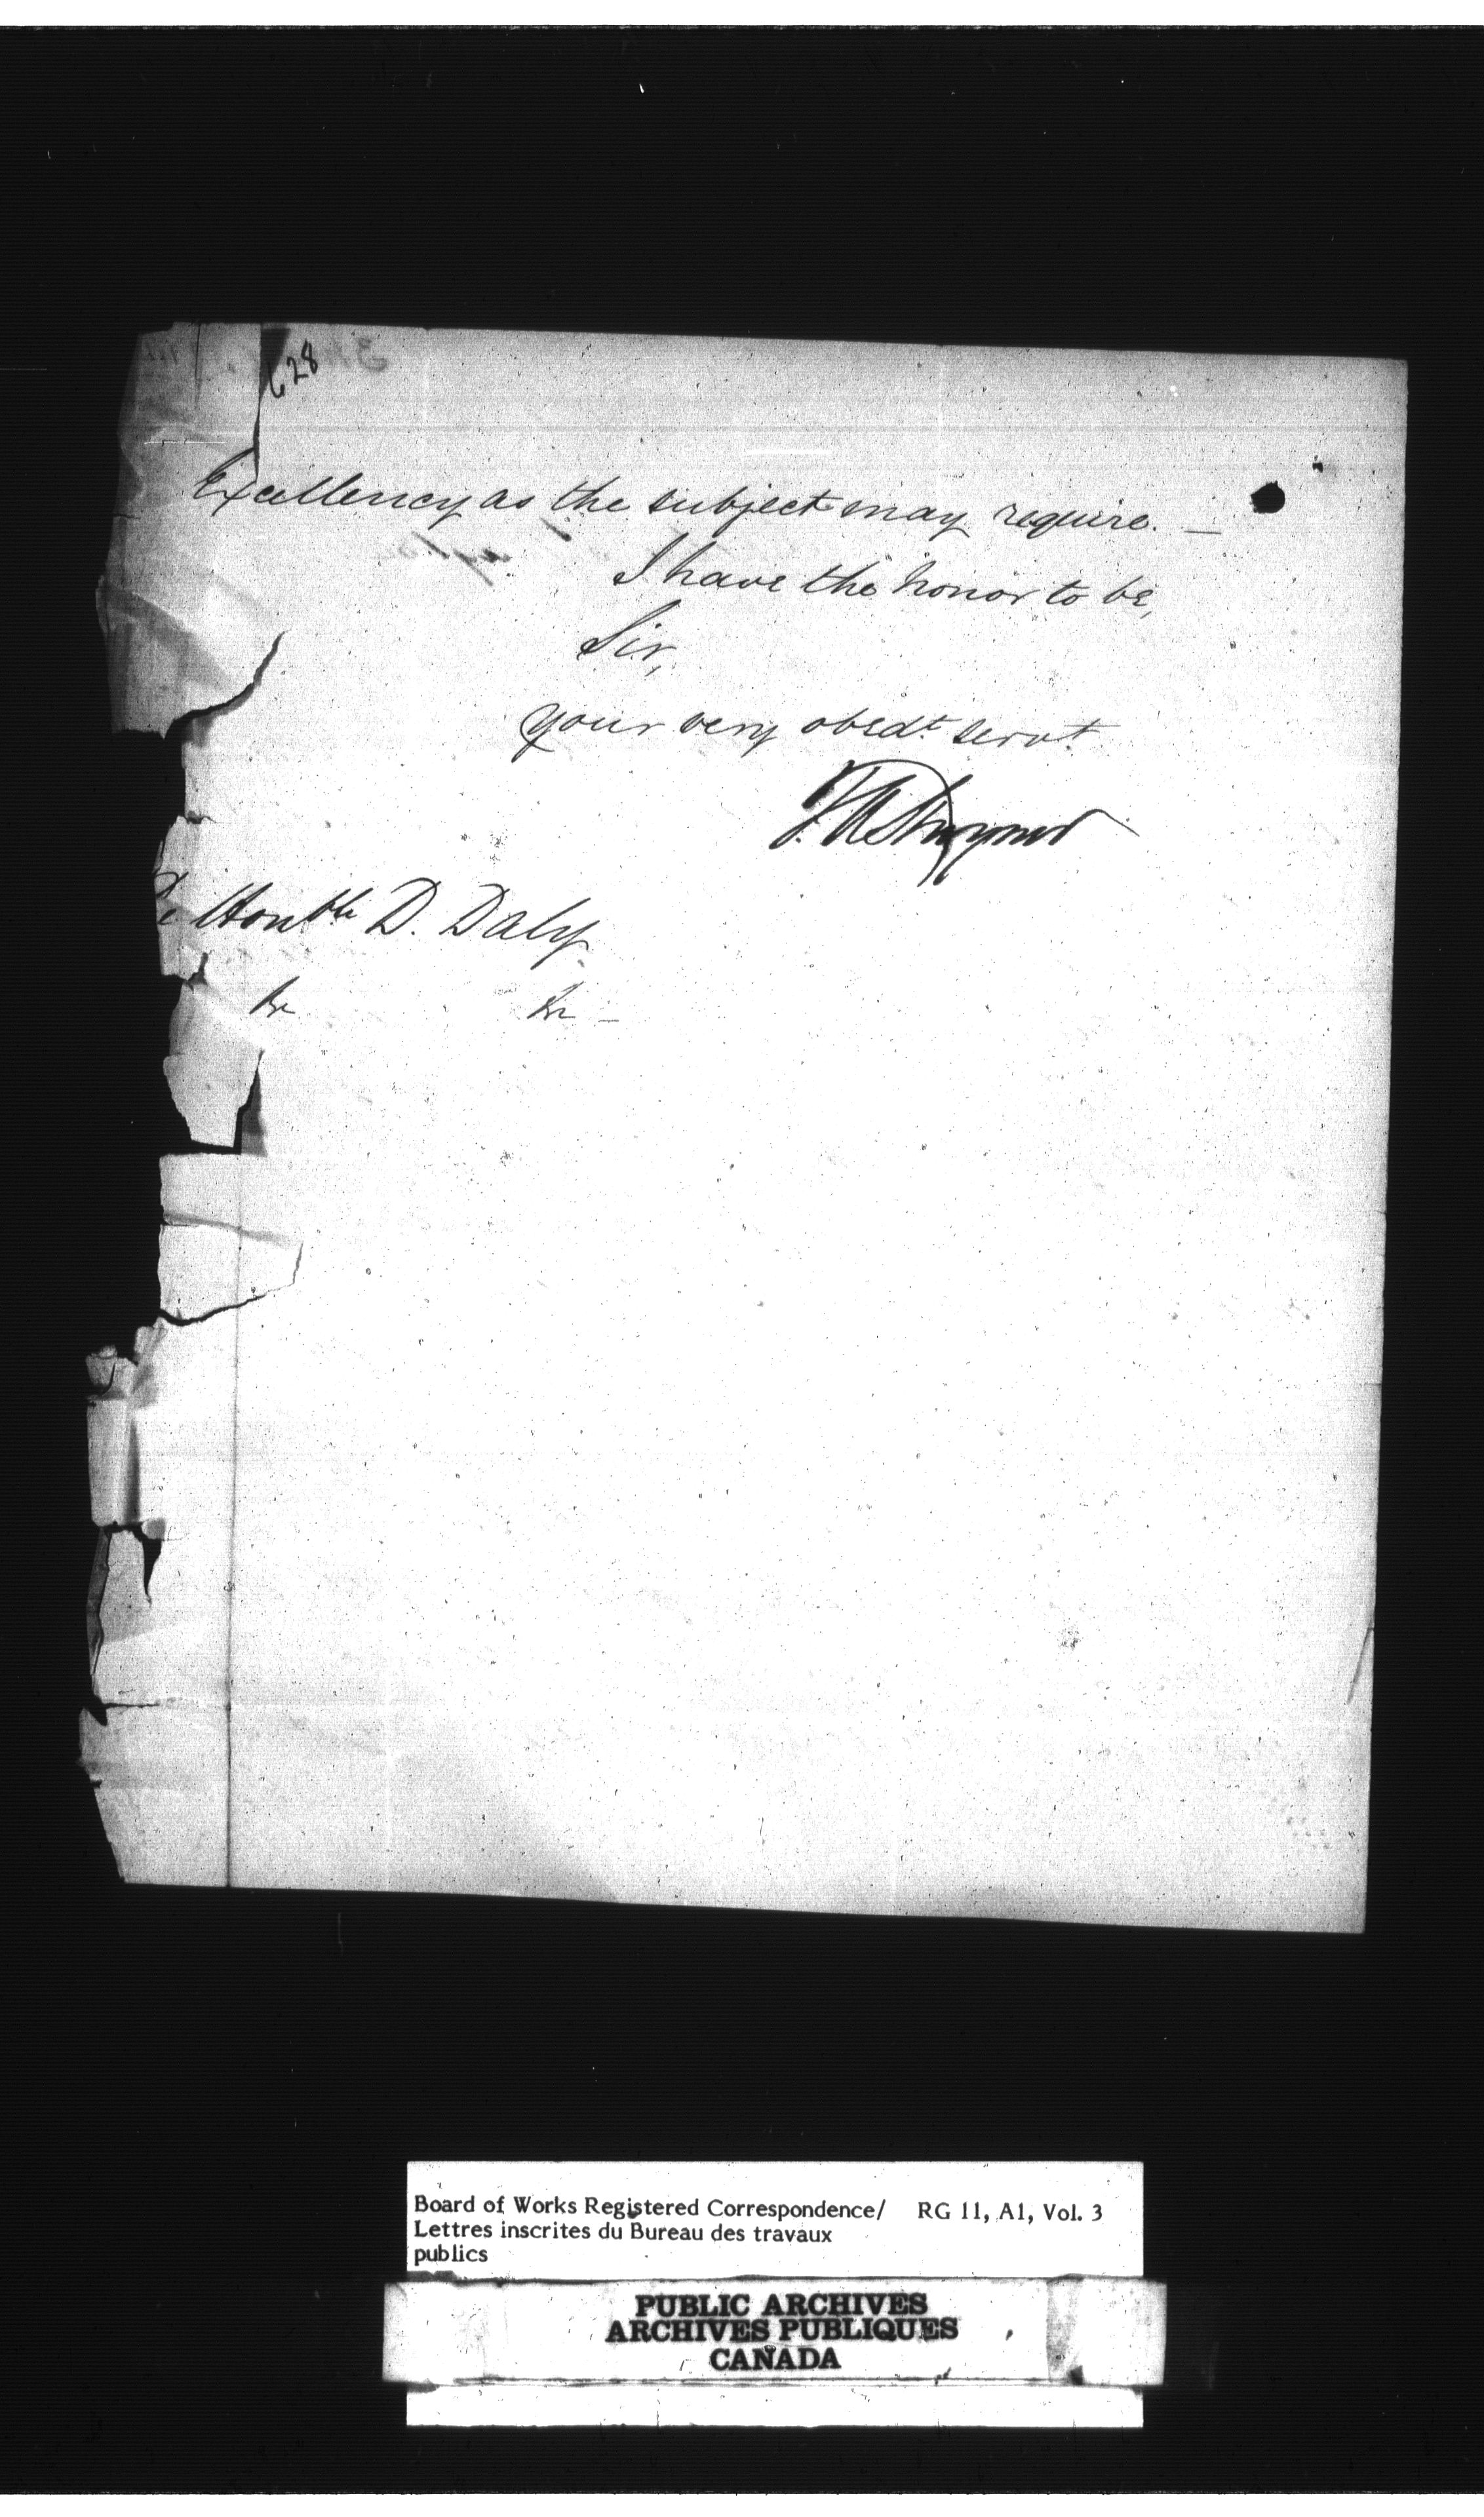 628
Excellency as the subject may require. —
I have the honor to be,
Sir,
Your very obedt servt
T. A. Stayner
The Honble D. Daly
&c &c —
Board of Works Registered Correspondence/ RG 11, A1, Vol. 3
Lettres inscrites du Bureau des travaux
publics
PUBLIC ARCHIVES
ARCHIVES PUBLIQUES
CANADA